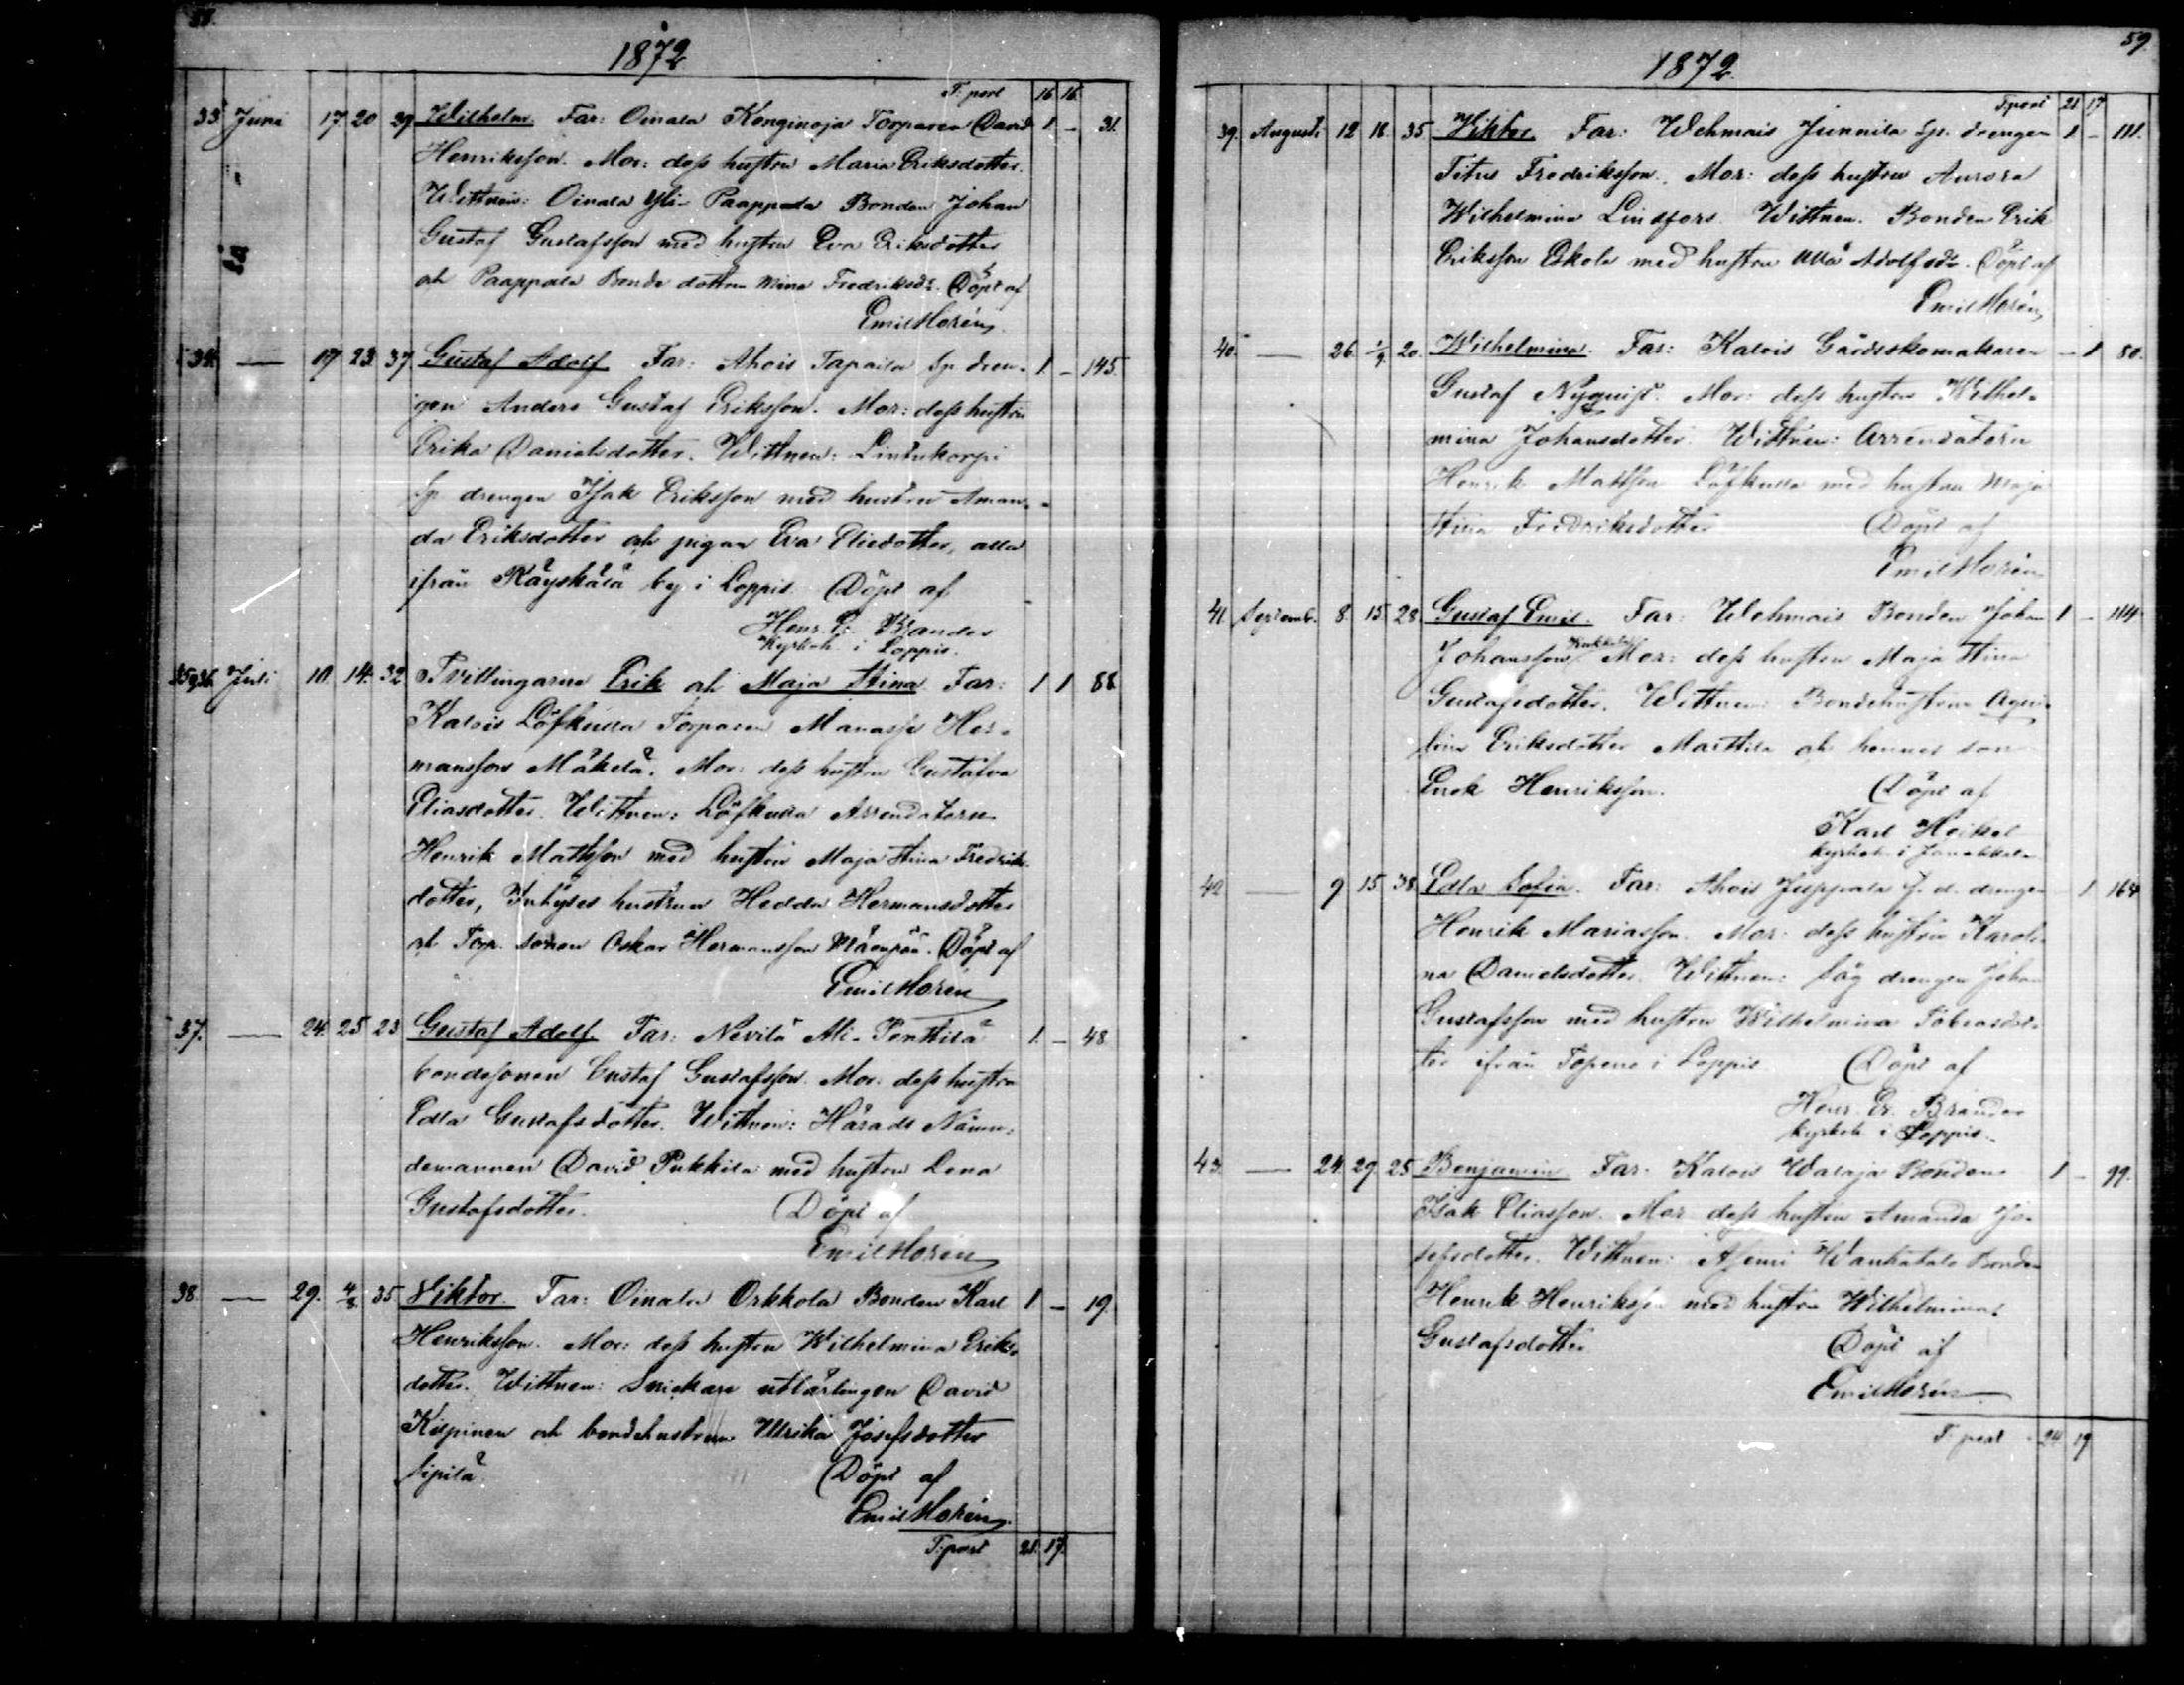 58.
1872
T. port 16 16
33 Juni 17. 20 29 Wilhelm. Far: Oinala Konginoja Torparen David 1 - 31.
Henriksson. Mor: dess hustru Maria Eriksdotter.
Wittnen: Oinala Yli- Paappala Bonden Johan
Gustaf Gustafsson med hustru Eva Eriksdotter
och Paappala Bonde dottren Mina Fredriksdr. Döpt af
Emil Morén
34. — 17 23. 37 Gustaf Adolf. Far: Ahois Tapaila Sp dren- 1. - 145.
gen Anders Gustaf Eriksson. Mor: dess hustru
Erika Danielsdotter. Wittnen: Lintukorpi
Sp drengen Isak Eriksson med hustru Aman-
da Eriksdotter och pigan Eva Eliedotter, alla
ifrån Räyskälä by i Loppis. Döpt af
Henr. Er. Brander
Kyrkoh. i Loppis.
35 36. Juli 10. 14. 32 Tvillingarne Erik och Maja Stina. Far: 1 1 88
Kalois Löfkulla Torparen Manasse Her-
mansson Mäkelä. Mor: dess hustru Gustafva
Eliasdotter. Wittnen: Löfkulla Arrendatorn
Henrik Mattsson med hustru Maja Stina Fredriks-
dotter, Inhyses hustrun Hedda Hermansdotter
och Torp. sonen Oskar Hermansson Döpt af
Emil Morén
37. — 24. 25 23 Gustaf Adolf. Far: Nevilä Ali- Penttilä 1. - 48
bondesonen Gustaf Gustafsson. Mor: dess hustru
Edla Gustafsdotter. Wittnen: Härads Näm-
demannen David Pukkila med hustru Lena
Gustafsdotter. Döpt af
Emil Morén
38. — 29. 4/8. 35 Viktor. Far: Oinala Orkkola Bonden Karl 1 - 19.
Henriksson. Mor: dess hustru Wilhelmina Eriks-
dotter. Wittnen: Snickare utlärlingen David
Kilpinen och bondehustrun Ulrika Josefsdotter
Sipilä. Döpt af
Emil Morén
T:port 21. 17.
59.
1872.
T:port 21 17
39. Augusti 12 18. 35. Viktor. Far: Wehmais Junnila Sp. drengen 1 - 111.
Titus Fredriksson. Mor: dess hustru Aurora
Wilhelmina Lindfors. Wittnen. Bonden Erik
Eriksson Eskola med hustru Ulla Adolfsdr. Döpt af
Emil Morén
40. — 26. 1/9. 20. Wilhelmina. Far: Kalois Gårdsskomakaren - 1 80.
Gustaf Nyqvist. Mor: dess hustru Wilhel-
mina Johansdotter. Wittnen: Arrendatorn
Henrik Mattsson Löfkulla med hustru Maja
Stina Fredriksdotter Döpt af
Emil Morén
41. Septemb. 8. 15. 28. Gustaf Emil. Far: Wehmais Bonden Johan 1 - 114.
Johansson Mor: dess hustru Maja Stina
Gustafsdotter. Wittnen: Bondehustrun
Eriksdotter Marttila och hennes son
Enok Henriksson. Döpt af
Karl Heikel
Kyrkoh. i Janakkala
42 — 9 15. 38. Edla Sofia. Far: Ahois Juppala drengen - 1. 164
Henrik Mariasson. Mor: dess hustru Karoli-
na Danielsdotter. Wittnen: Såg drengen Johan
Gustafsson med hustru Wilhelmina Tobiasdot-
ter ifrån Topeno i Loppis Döpt af
Henr. Er. Brander
kyrkoh. i Loppis.
43. — 24. 29. 25 Benjamin. Far: Kalois Walaja Bonden 1 - 99.
Isak Eliasson. Mor dess hustru Amanda Jo-
sefsdotter. Wittnen: Asemi Wanhatalo Bonden
Henrik Henriksson med hustru Wilhelmina
Gustafsdotter Döpt af
Emil Morén
T. port 24 19